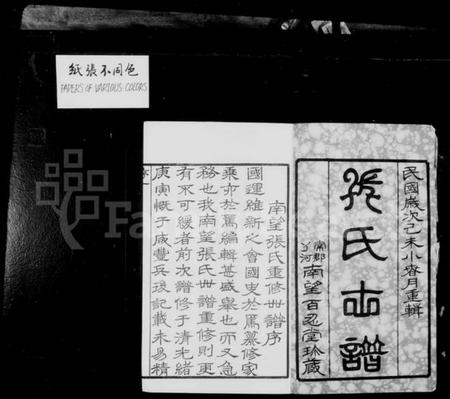 紙張不同色
PAPERS OF VARIOUS COLORS
民國歲次己未小春月重輯
張氏世譜
南望百忍堂珍藏
南望張氏重修世譜序
國運維新之會國史於焉纂修家
乘亦於焉編輯甚盛舉也而又急
務也我南望張氏世譜重修則更
有不可緩者前次譜修于清光緒
庚寅慨于咸豐兵燹記載未易精